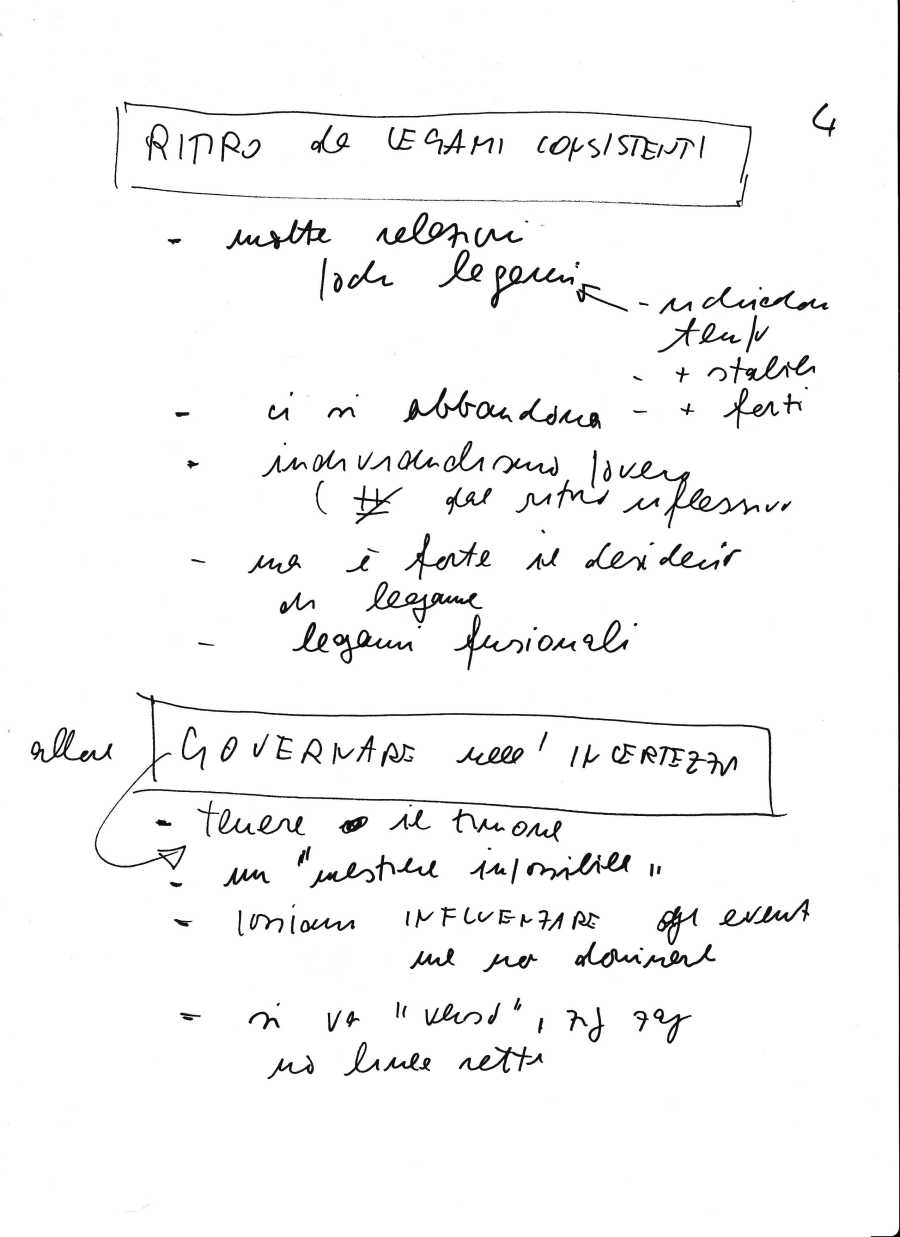 4
RITIRO da LEGAMI CONSISTENTI
- molte relazioni
pochi legami
- richiedon
tempo
- + stabili
- + forti
- ci si abbandona
- individualismo povero
( ≠ dal ritiro riflessivo
- ma è forte il desiderio
di legame
- legami fusionali
allora GOVERNARE nell'INCERTEZZA
- tenere il timone
- un "mestiere impossibile"
- possiamo INFLUENZARE gli eventi
ma no dominarli
- si va "verso", zig zag
no linee rette